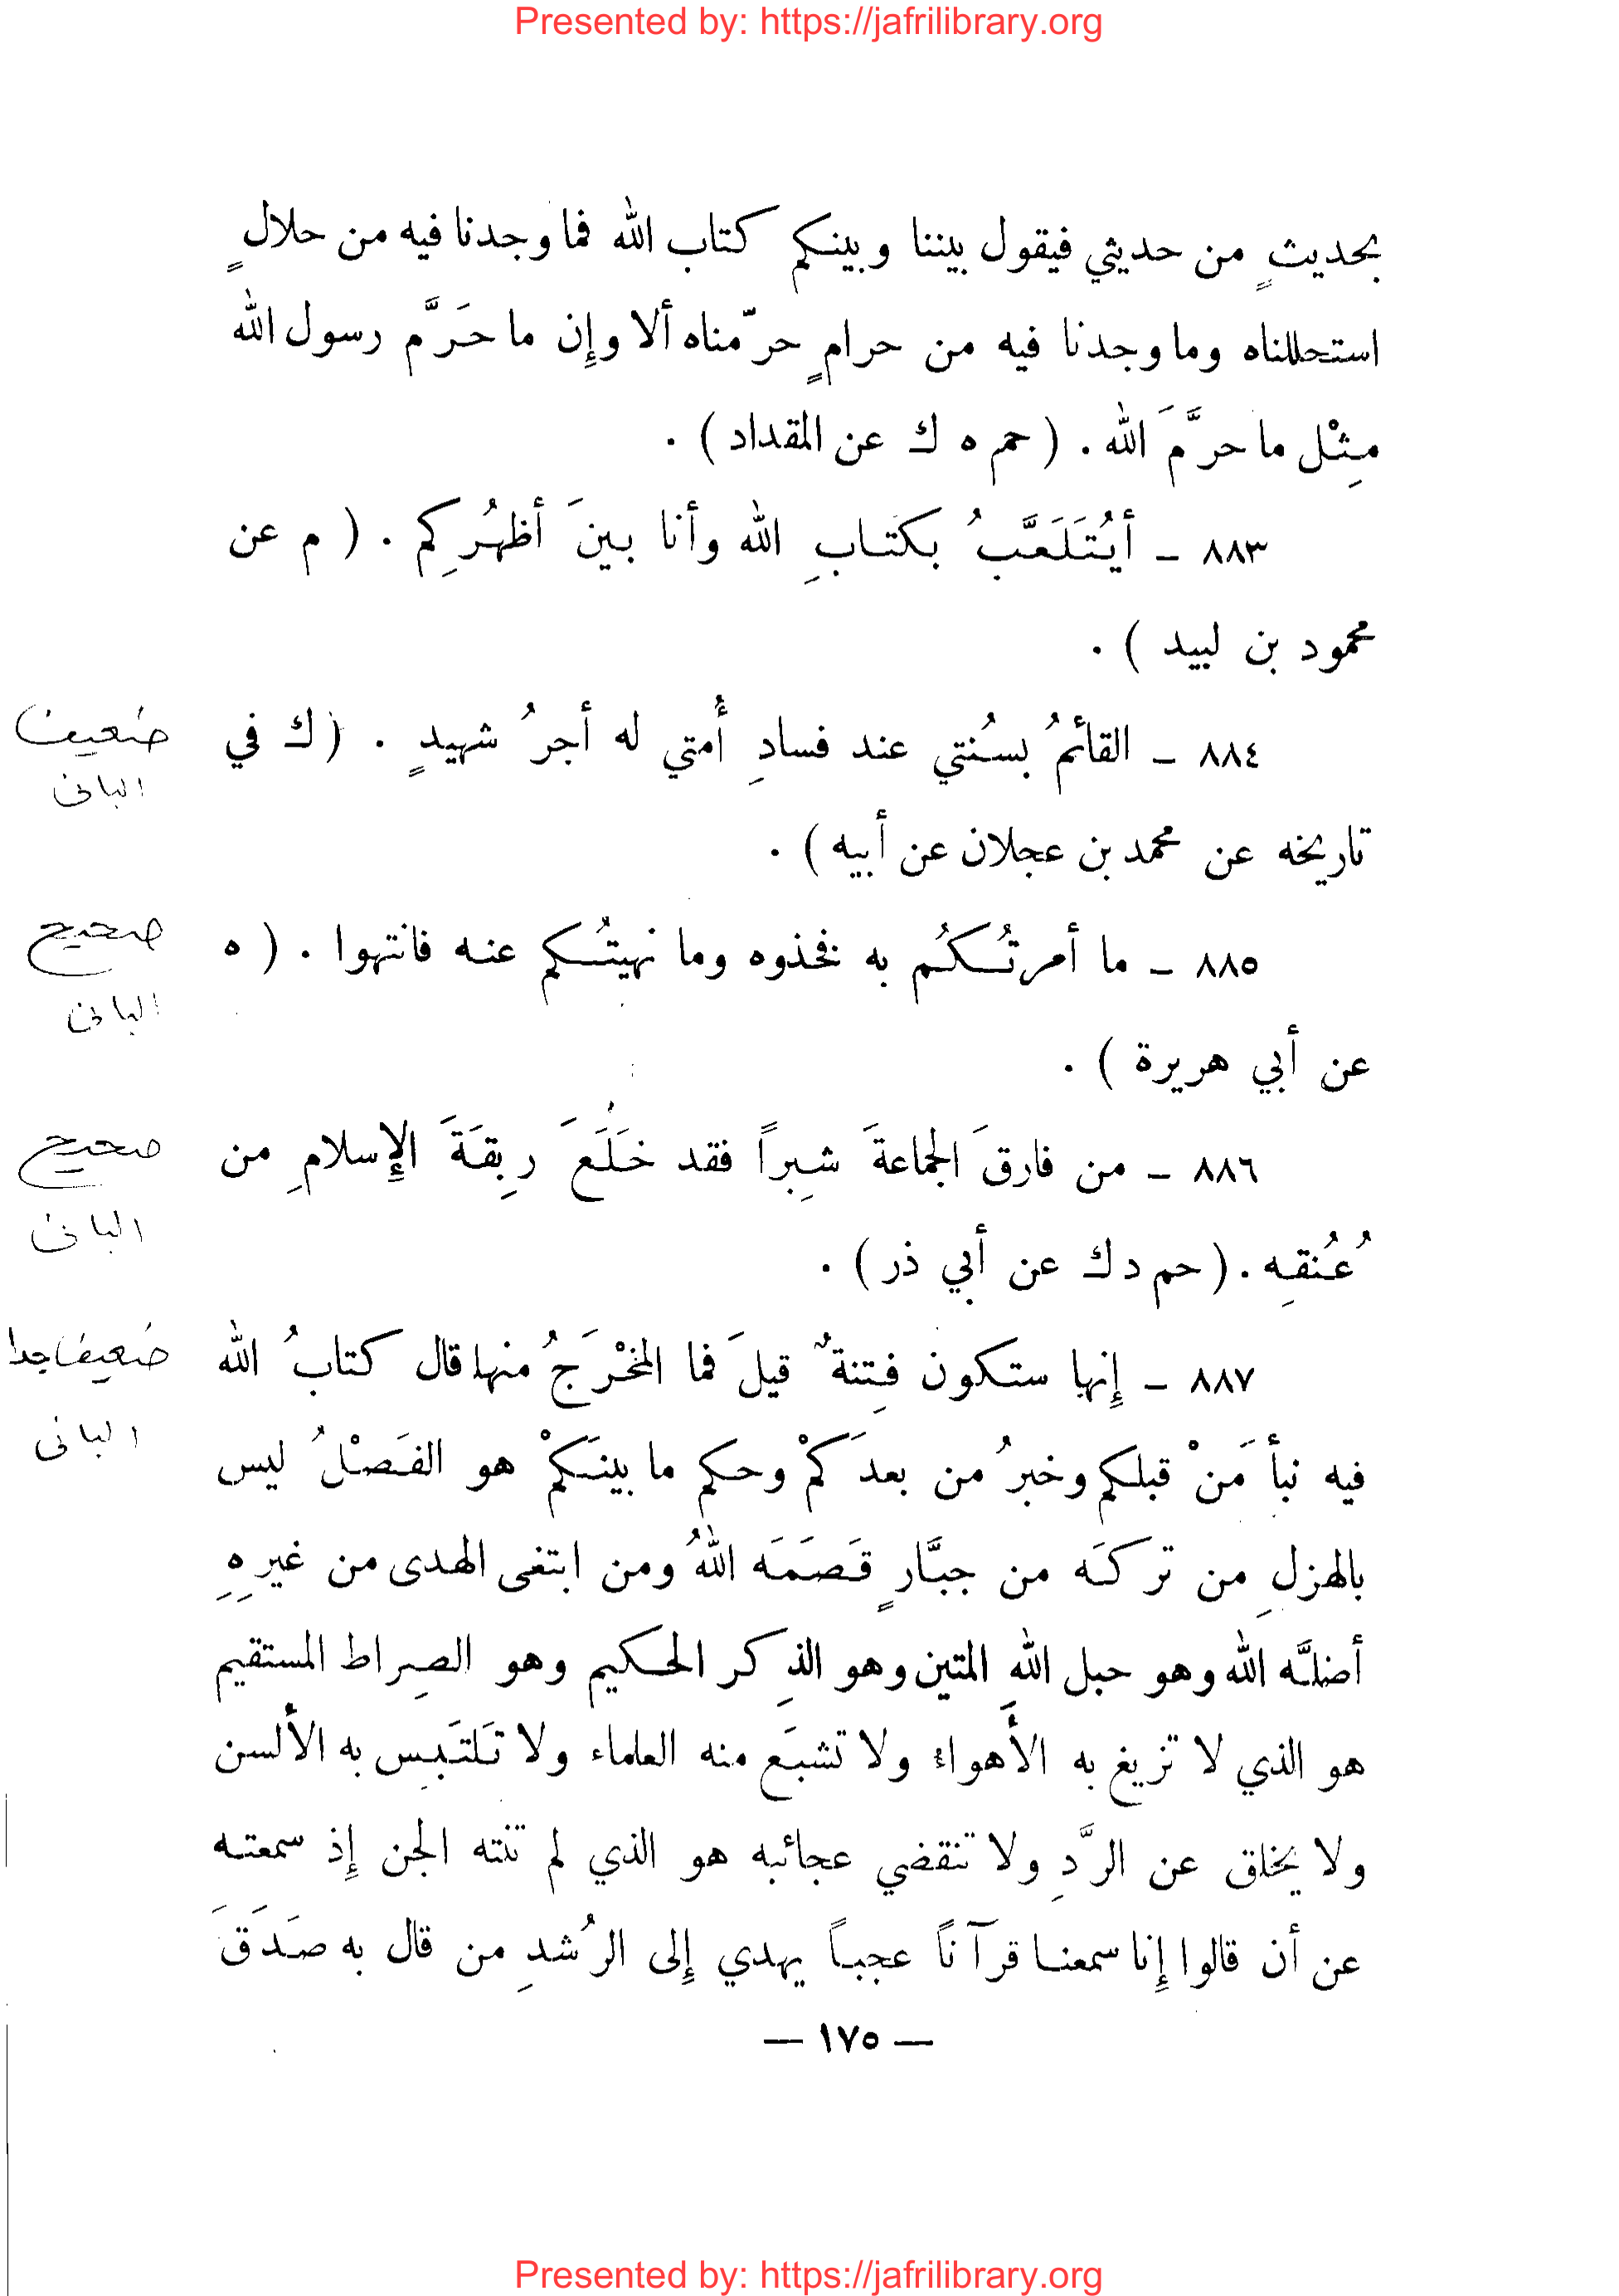 Presented by: https://jafrilibrary.org
بحديثٍ من حديثي فيقول بيننا وبينكم كتاب الله فما وجدنا فيه من حلالٍ
استحللناه وما وجدنا فيه من حرامٍ حرّمناه ألا وإن ما حَرَّم رسول الله
مِثْل ما حرَّمَ الله . ( حم ه ك عن المقداد ) .
٨٨٣ ـ أيُتَلَعَّبُ بكتابِ الله وأنا بينَ أظهُرِكم . ( م عن
محمود بن لبيد ) .
٨٨٤ ـ القائمُ بسُنتي عند فسادِ أُمتي له أجرُ شهيدٍ . ( ك في
ضعيف
البانى
تاريخه عن محمد بن عجلان عن أبيه ) .
٨٨٥ ـ ما أمرتُكُم به فخذوه وما نهيتُكم عنه فانتهوا . ( ه
صحيح
البانى
عن أبي هريرة ) .
٨٨٦ ـ من فارقَ الجماعةَ شِبراً فقد خَلَعَ رِبقَةَ الإسلامِ من
صحيح
البانى
عُنُقِه . ( حم د ك عن أبي ذر ) .
٨٨٧ ـ إِنها ستكون فِتنةٌ قيلَ فما المَخْرَجُ منها قال كتابُ الله
ضعيف جدا
البانى
فيه نبأ مَنْ قبلكم وخبرُ من بعدَكمْ وحكم ما بينَكمْ هو الفَصْلُ ليس
بالهزلِ من تركَه من جبَّارٍ قَصَمَه اللهُ ومن ابتغى الهدى من غيرِهِ
أضلَّه الله وهو حبل الله المتين وهو الذِكر الحكيم وهو الصِراط المستقيم
هو الذي لا تزيغ به الأَهواء ولا تشبَع منه العلماء ولا تَلتَبِس به الألسن
ولا يخلق عن الرَّدِ ولا تنقضي عجائبه هو الذي لم تنته الجن إِذ سمعته
عن أن قالوا إِنا سمعنا قرآناً عجباً يهدي إِلى الرُشدِ من قال به صَدَقَ
— ١٧٥ —
Presented by: https://jafrilibrary.org